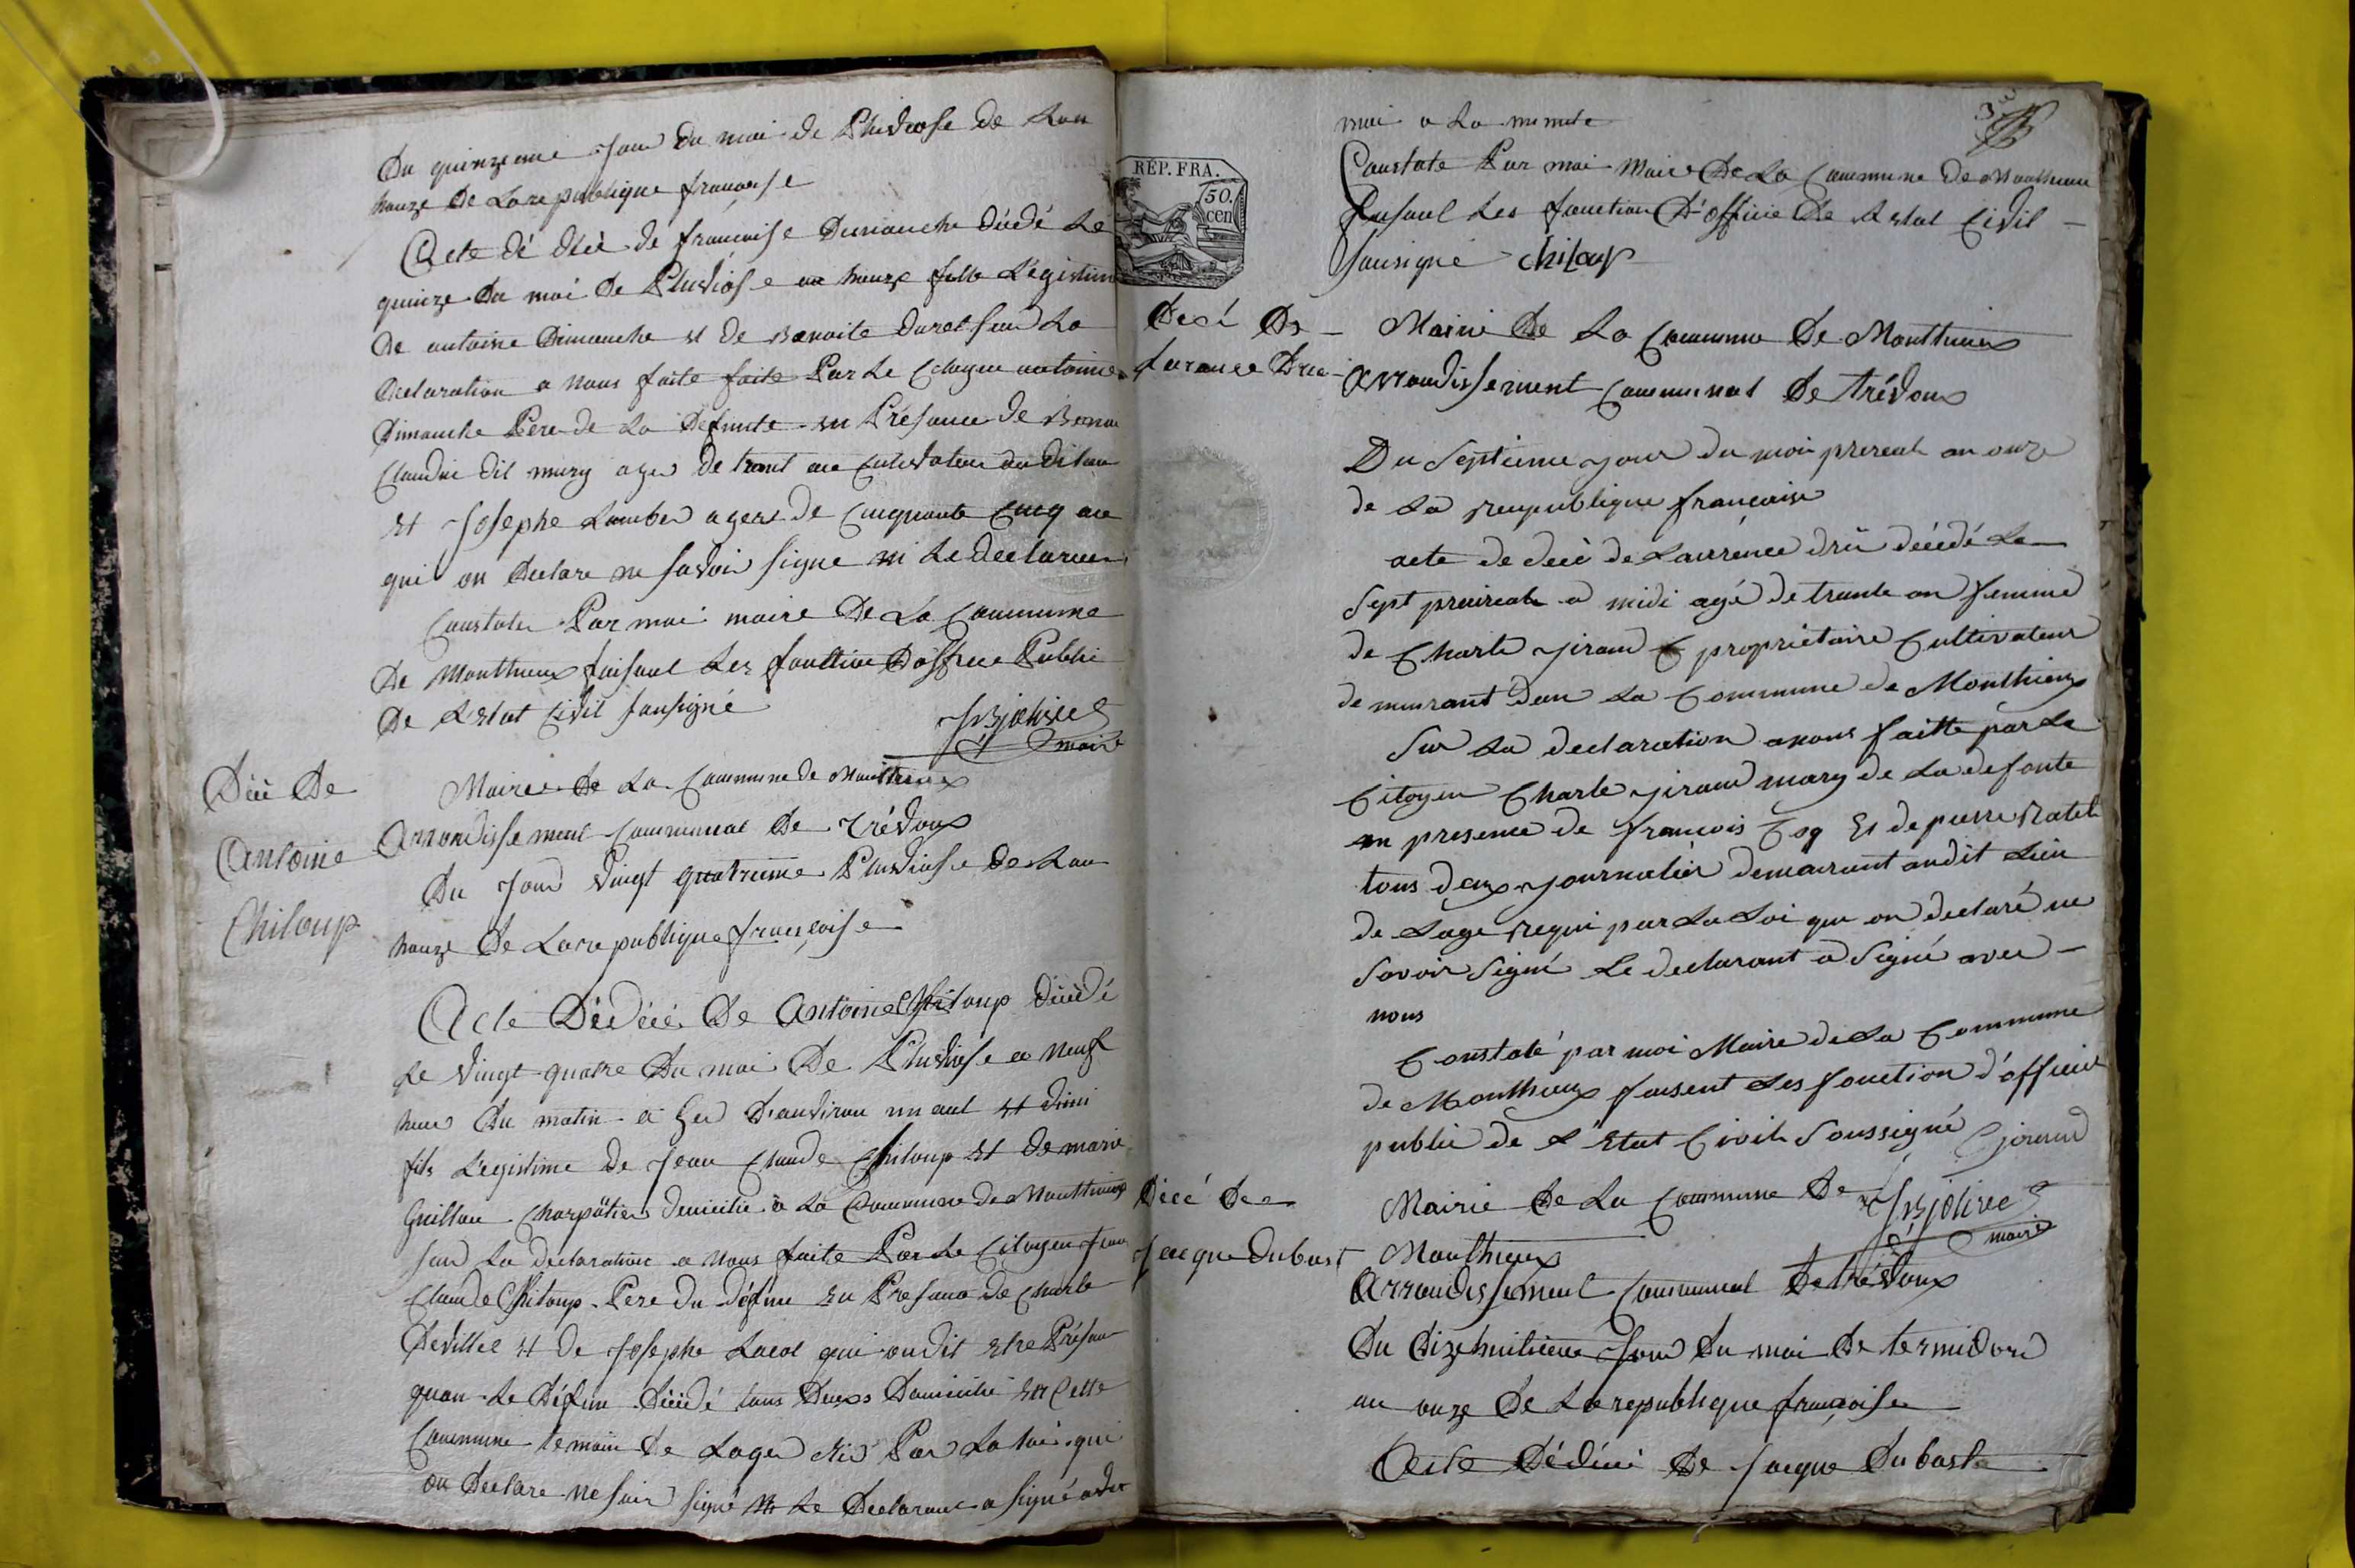 Du quinzeme jour du moi de Pluviose de Lan
honze de La republique francaise
Acte dé décè de francoise Dimanche décédé Le
quinze du moi de Pluviose an honze fille Légistime
de antoine Dimanche et de Benoite duret sur La
declaration a nous faite faite Par Le Citoyen antoine
Dimanche Pere de La Défunte en Présance de
Claudin dit mury agé de trant ans Cultivateur
et Josephe Lamber ageré de Cinquante Cinq ans
qui on declare ne savoir signe ni Le declaren
Constater Par moi maire de La Commune
De Monthieux faisant Les fonction D'offise Public
De L'etat Civil sousigné
JB jolivet
maire
Décè De
Antoine
Chiloup
Mairie de La Commune de Monthieux
Arrondissement Communal De Trévoux
Du Jour vingt quatrieme Pluviose de Lan
honze De La republique françoise
Acte Dé Décè De Antoine Chiloup décédé
Le vingt quatre Du moi De Pluviose a neuf
heur Du matin a gé D'anviron un ant et dimi
fils Légistime de Jean Claude Chiloup et de marie
Guillon Charpâtier domicilie à La Commune de Monthieux
sur La declaration a nous faite Par Le Citoyen Jean
Claude Chiloup Pere du défun en Presance de Charle
Deville et de Josephe Lacot qui on dit etre Présan
quan Le Défun décédé tous Deux Domicilié en Cette
Commune temoin de Lage Par La loi qui
on Declare ne savoir signé Le Declarant a signé avec
REP. FRA.
50.
cen
moi a La minute
Constate Par moi Maire De La Commune de Monthieux
faisant Les fonction D'officie de L'etat Civil
sousigné Chiloup
Decé De
Laurance Dru
Mairi De La Commune De Monthieux
Arrondissement Communal De trévoux
Du Septieme jour du moi prereal an onze
de La Reupublique françaisé
acte de décè de Laurence drû décédé Le
Sept praireal a midi agé de trante an femme
de Charle jiraud propriétaire Cultivateur
demeurant dan La Commune de Monthieux
Sur La declaration a nous faitte par Le
Citoyen Charle jiraud mary de La defonte
en presence de francois Coq Et de pierre Natel
tous deux journalier demeurant audit Lieu
de Lage requi par La Loi qui on declaré ne
Savoir Signé Le declarant a Signé avec
nous
Constaté par moi Maire de La Commune
de Monthieux faisent Les fonction d'officié
public de L'Etat Civil Soussigné Giraud
JB jolivet
maire
Décé De
Jacque Dubost
Mairie De La Commune De
Monthieux
Arrondissement Communal De trévoux
Du dizehuitieme Jour Du moi De termidore
an onze De La republique françoise
Acte Dé Décè De Jacque Dubost